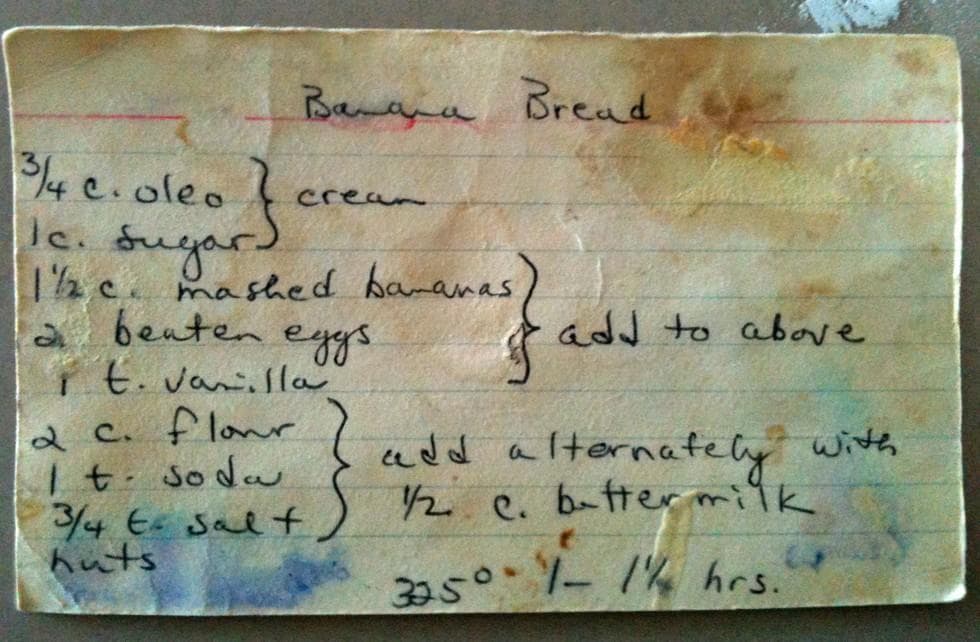 Banana Bread
3/4 c. oleo } cream
1 c. sugar
1 1/2 c. mashed bananas
2 beaten eggs } add to above
1 t. vanilla
2 c. flour
1 t. soda } add alternately with
3/4 t. salt 1/2 c. buttermilk
nuts
325° 1 - 1 1/4 hrs.